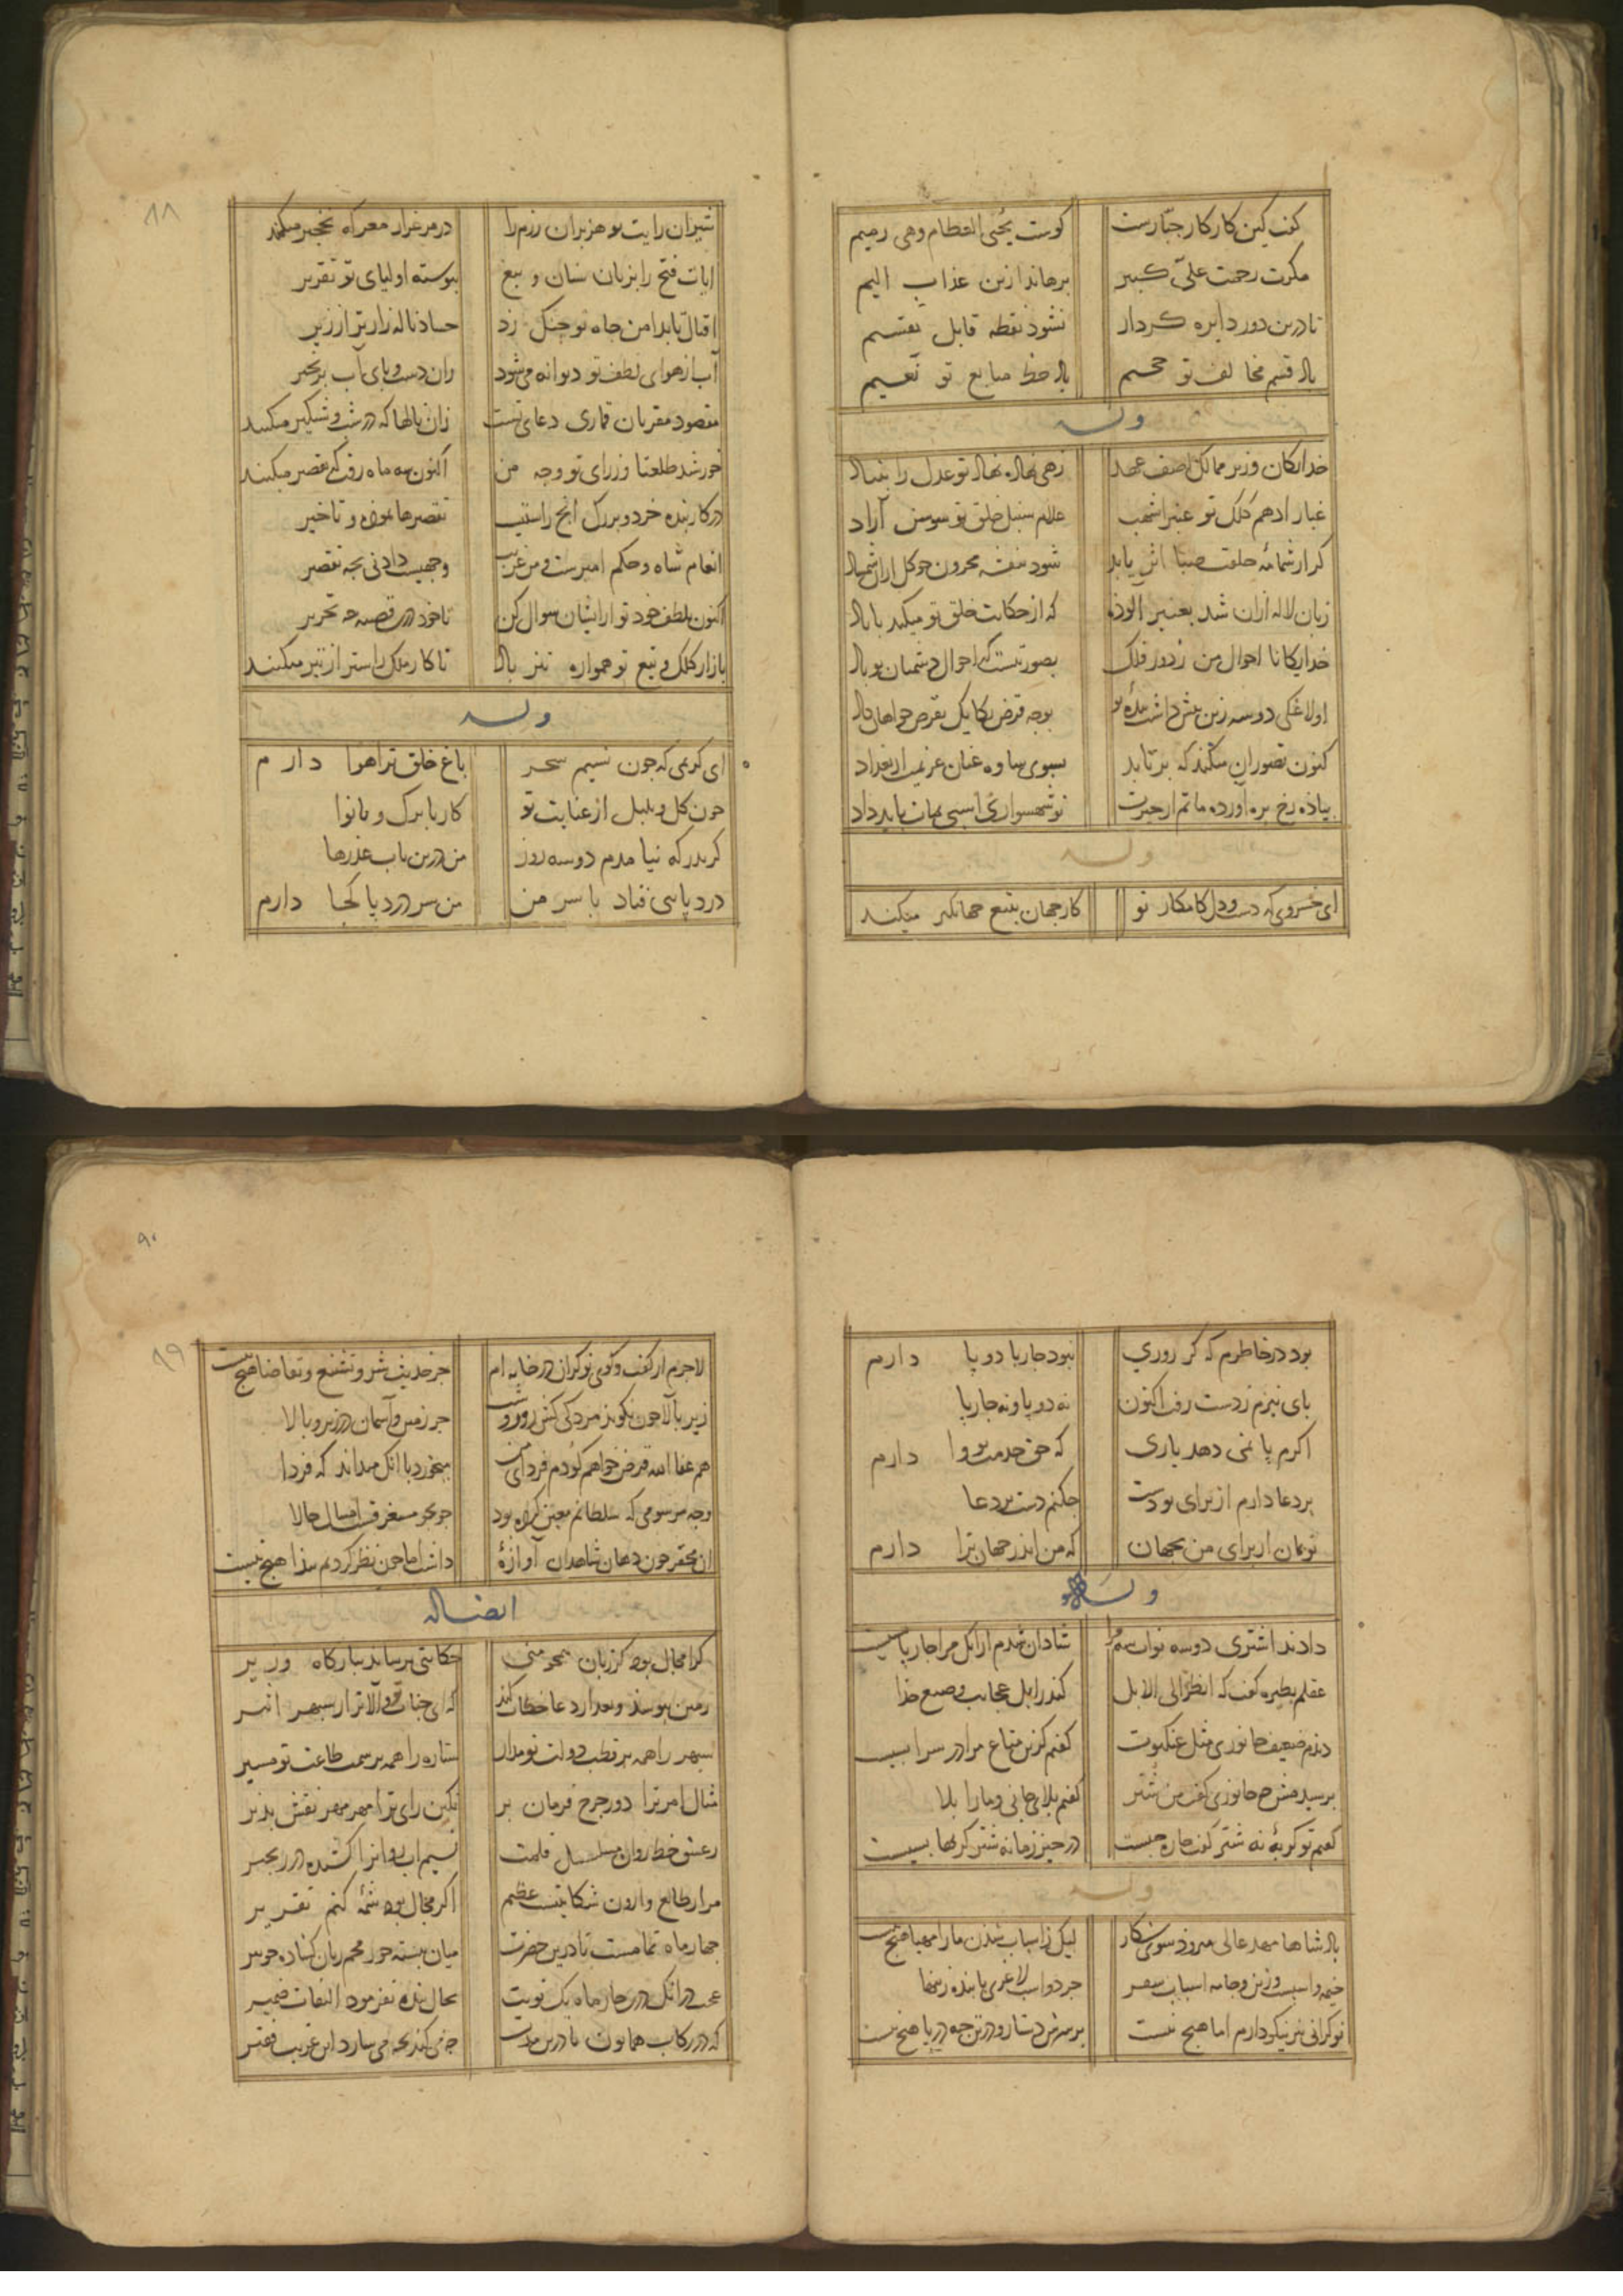 گفت کین کار کار جبّارست کوست یحیی العظام وهی رمیم
مکرت رحمت علیّ کبیر برهاند ازین عذاب الیم
تا درین دور دایره کردار نشود نقطه قابل تقسیم
باد قسم مخالف تو جحیم باد حظ متابع تو نعیم
وله
خدایکان وزیر ممالک اصف عهد زهی نهاده نهاد تو عدل را بنیاد
غبار ادهم کلک تو عنبر اشهب غلام سنبل خلق تو سوسن آزاد
کر از شمامه خلقت صبا اثر یابد شود بنفشه محزون چو کل ازان شهاد
زبان لاله ازان شد بعنبر الوده که از حکایت خلق تو میکند با باد
خدایکانا احوال من ز دور فلک بصورتیست که احوال دشمنان تو باد
اولاغکی دو سه زین پیش داشت بنده تو بوجه قرض یکایک بقرض خواهان داد
کنون تصور ان میکند که بر تابد بسوی ساوه عنان عزیمت از بغداد
پیاده رخ بره آورده ماتم از حیرت تو شهسواری اسبی بمات باید داد
وله
ای خسروی که دست و دل کامکار تو کار جهان بتیغ جهانکیر میکند
شیران رایت تو هزبران رزم را در مرغزار معرکه نخجیر میکند
ایات فتح را بزبان سنان و تیغ پیوسته اولیای تو تقریر
اقبال تا بدامن جاه تو چنک زد حساد ناله زارتر از زیر
آب از هوای لطف تو دیوانه می شود وان دست و پای آب بزنجیر
مقصود مقربان قماری دعای تست زان نالها که در شب و شبکیر میکنند
خورشید طلعتا وزرای تو وجه من اکنون سه ماه رفت که تقصیر میکنند
در کار بنده خرد و بزرک انچ راستیست تقصیرها نموده و تاخیر
انعام شاه و حکم امیرست و من غریب وجهیست دادنی بچه تقصیر
اکنون بلطف خود تو ازیشان سوال کن تا خود درین قصیه چه تحریر
بازار کلک و تیغ تو همواره تیز باد تا کار ملک راستر از تیر میکنند
وله
ای کریمی که چون نسیم سحر باغ خلق ترا هوا دارم
چون کل و بلبل از عنایت تو کار با برک و با نوا
کر بدرکه نیامدم دو سه روز من درین باب عذرها
درد پایی فتاد با سر من من سر درد پا کجا دارم
بود در خاطرم که کر روزی نبود چارپا دو پا دارم
پای نیزم ز دست رفت اکنون نه دو پا و نه چارپا
اکرم پا نمی دهد یاری که حق خدمت تو وا دارم
بر دعا دارم از برای تو دست چکنم دست بر دعا
تو بمان از برای من بجهان که من اندر جهان ترا دارم
وله
دادند اشتری دو سه نواب شه مرا شادان شدم ازانک مرا چارپا بسیست
عقلم بطیره کفت که انظر الی الابل کندر ابل عجایب وصنع خدا
دیدم ضعیف جانوری مثل عنکبوت کفتم کزین متاع مرا در سرا بسیست
پرسیدمش چه جانوری کفت من شتر کفتم بلای جانی و ما را بلا
کفتم تو کربهٔ نه شتر کفت چاره چیست در حیز زمانه شتر کربها بسیست
وله
پادشاها مهد عالی میرود سوی شکار لیک ز اسباب شدن ما را مهیا هیچ نیست
خیمه و اسبست و زین و جامه اسباب سفر جز دو اسب لاغری با بنده زینها
نوکرانی نیز نیکو دارم اما هیچ نیست بر سرش دستار و در تن جبه در پا هیچ نیست
لاجرم از کفت و کوی نوکران در خانه ام جز حدیث شر و تشنیع و تقاضا هیچ نیست
زیر بالا چون نکوید مردکی کش روز و شب جز زمین و آسمان در زیر و بالا
هم عفا الله قرض خواهم کو دم فردای من میخورد با انک میداند که فردا
وجه مرسومی که سلطانم معین کرده بود جو بجو مستغرقست امسال حالا
ان محقر چون دهان شاهدان آوازهٔ داشت اما چون نظر کردیم پیدا هیچ نیست
ایضا له
کرا مجال بود کز زبان همچو منی حکایتی برساند ببارکاه وزیر
زمین ببوسد و بعد از دعا خطاب کند که ای جناب تو بالاتر از سپهر اثیر
سپهر را همه بر قطب دولت تو مدار ستاره را همه بر سمت طاعت تو مسیر
مثال امر ترا دور چرخ فرمان بر نکین رای ترا مهر مهر نقش پذیر
ز عشق خط روان مسلسل قلمت نسیم اب روانرا کشیده در زنجیر
مرا ز طالع وارون شکایتیست عظیم اکر مجال بود شمهٔ کنم تقریر
چهار ماه تمامست تا درین حضرت میان ببسته چو رمحم زبان کشاده چو تیر
عجب درانک درین چار ماه یک نوبت بحال بنده نفرمود التفات ضمیر
که در رکاب همایون ما درین مدت چه می کند بچه می سازد این غریب فقیر